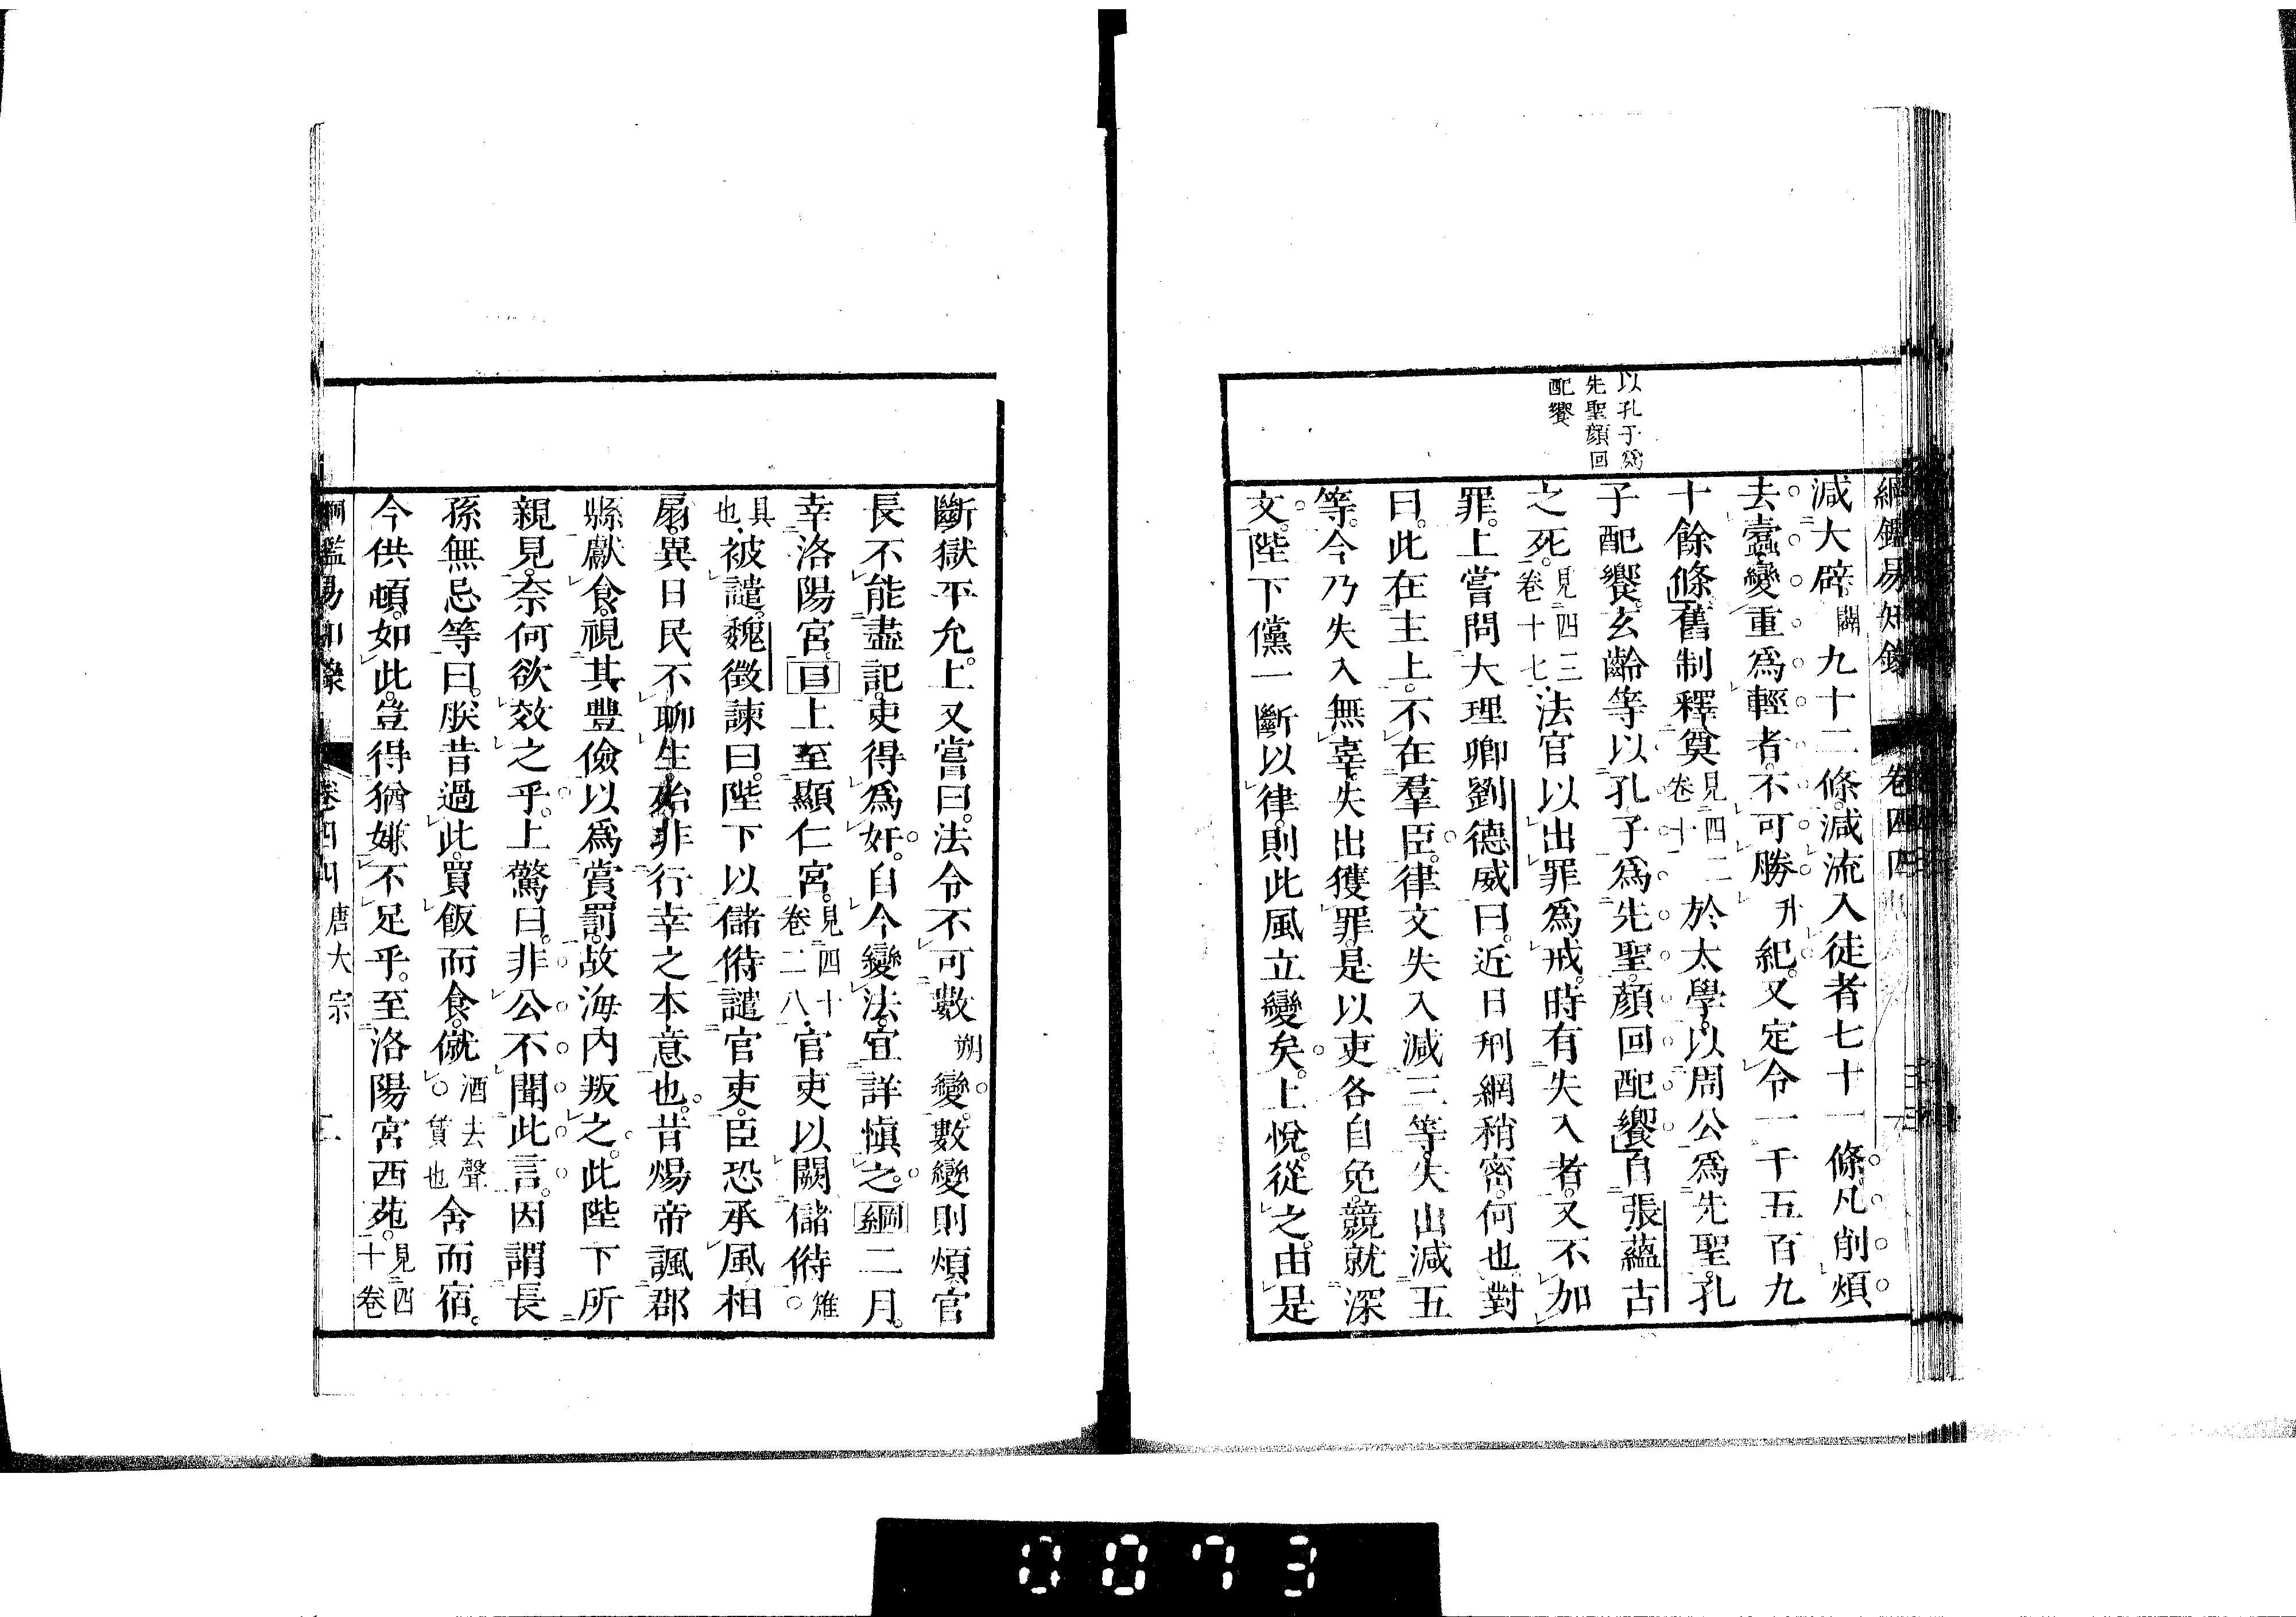 綱鑑易知錄 卷四四
以孔子爲
先聖顔回
配饗
減大辟闢九十二條。減流入徒者七十一條。凡削煩
去蠧。變重爲輕者。不可勝升紀。又定令一千五百九
十餘條。舊制釋奠見四二卷十一於太學。以周公爲先聖。孔
子配饗。玄齡等以孔子爲先聖。顔回配饗。自張蘊古
之死。見四三卷十七法官以出罪爲戒。時有失入者。又不加
罪。上嘗問大理卿劉德威曰。近日刑網稍密。何也。對
曰。此在主上。不在羣臣。律文失入減三等。失出減五
等。今乃失入無辜。失出獲罪。是以吏各自免。競就深
文。陛下儻一斷以律。則此風立變矣。上悅。從之。由是
斷獄平允。上又嘗曰。法令不可數朔變。數變則煩。官
長不能盡記。吏得爲奸。自今變法。宜詳愼之。綱二月。
幸洛陽宮。目上至顯仁宮。見四十卷二八官吏以闕儲偫雉○
具也被譴。魏徵諫曰。陛下以儲偫譴官吏。臣恐承風相
扇。異日民不聊生。殆非行幸之本意也。昔煬帝諷郡
縣獻食。視其豐儉以爲賞罰。故海内叛之。此陛下所
親見。奈何欲效之乎。上驚曰。非公不聞此言。因謂長
孫無忌等曰。朕昔過此。買飯而食。僦酒去聲○賃也舍而宿。
今供頓如此。豈得猶嫌不足乎。至洛陽宮西苑。見四十卷
綱鑑易知錄 卷四四 唐太宗 二
0073